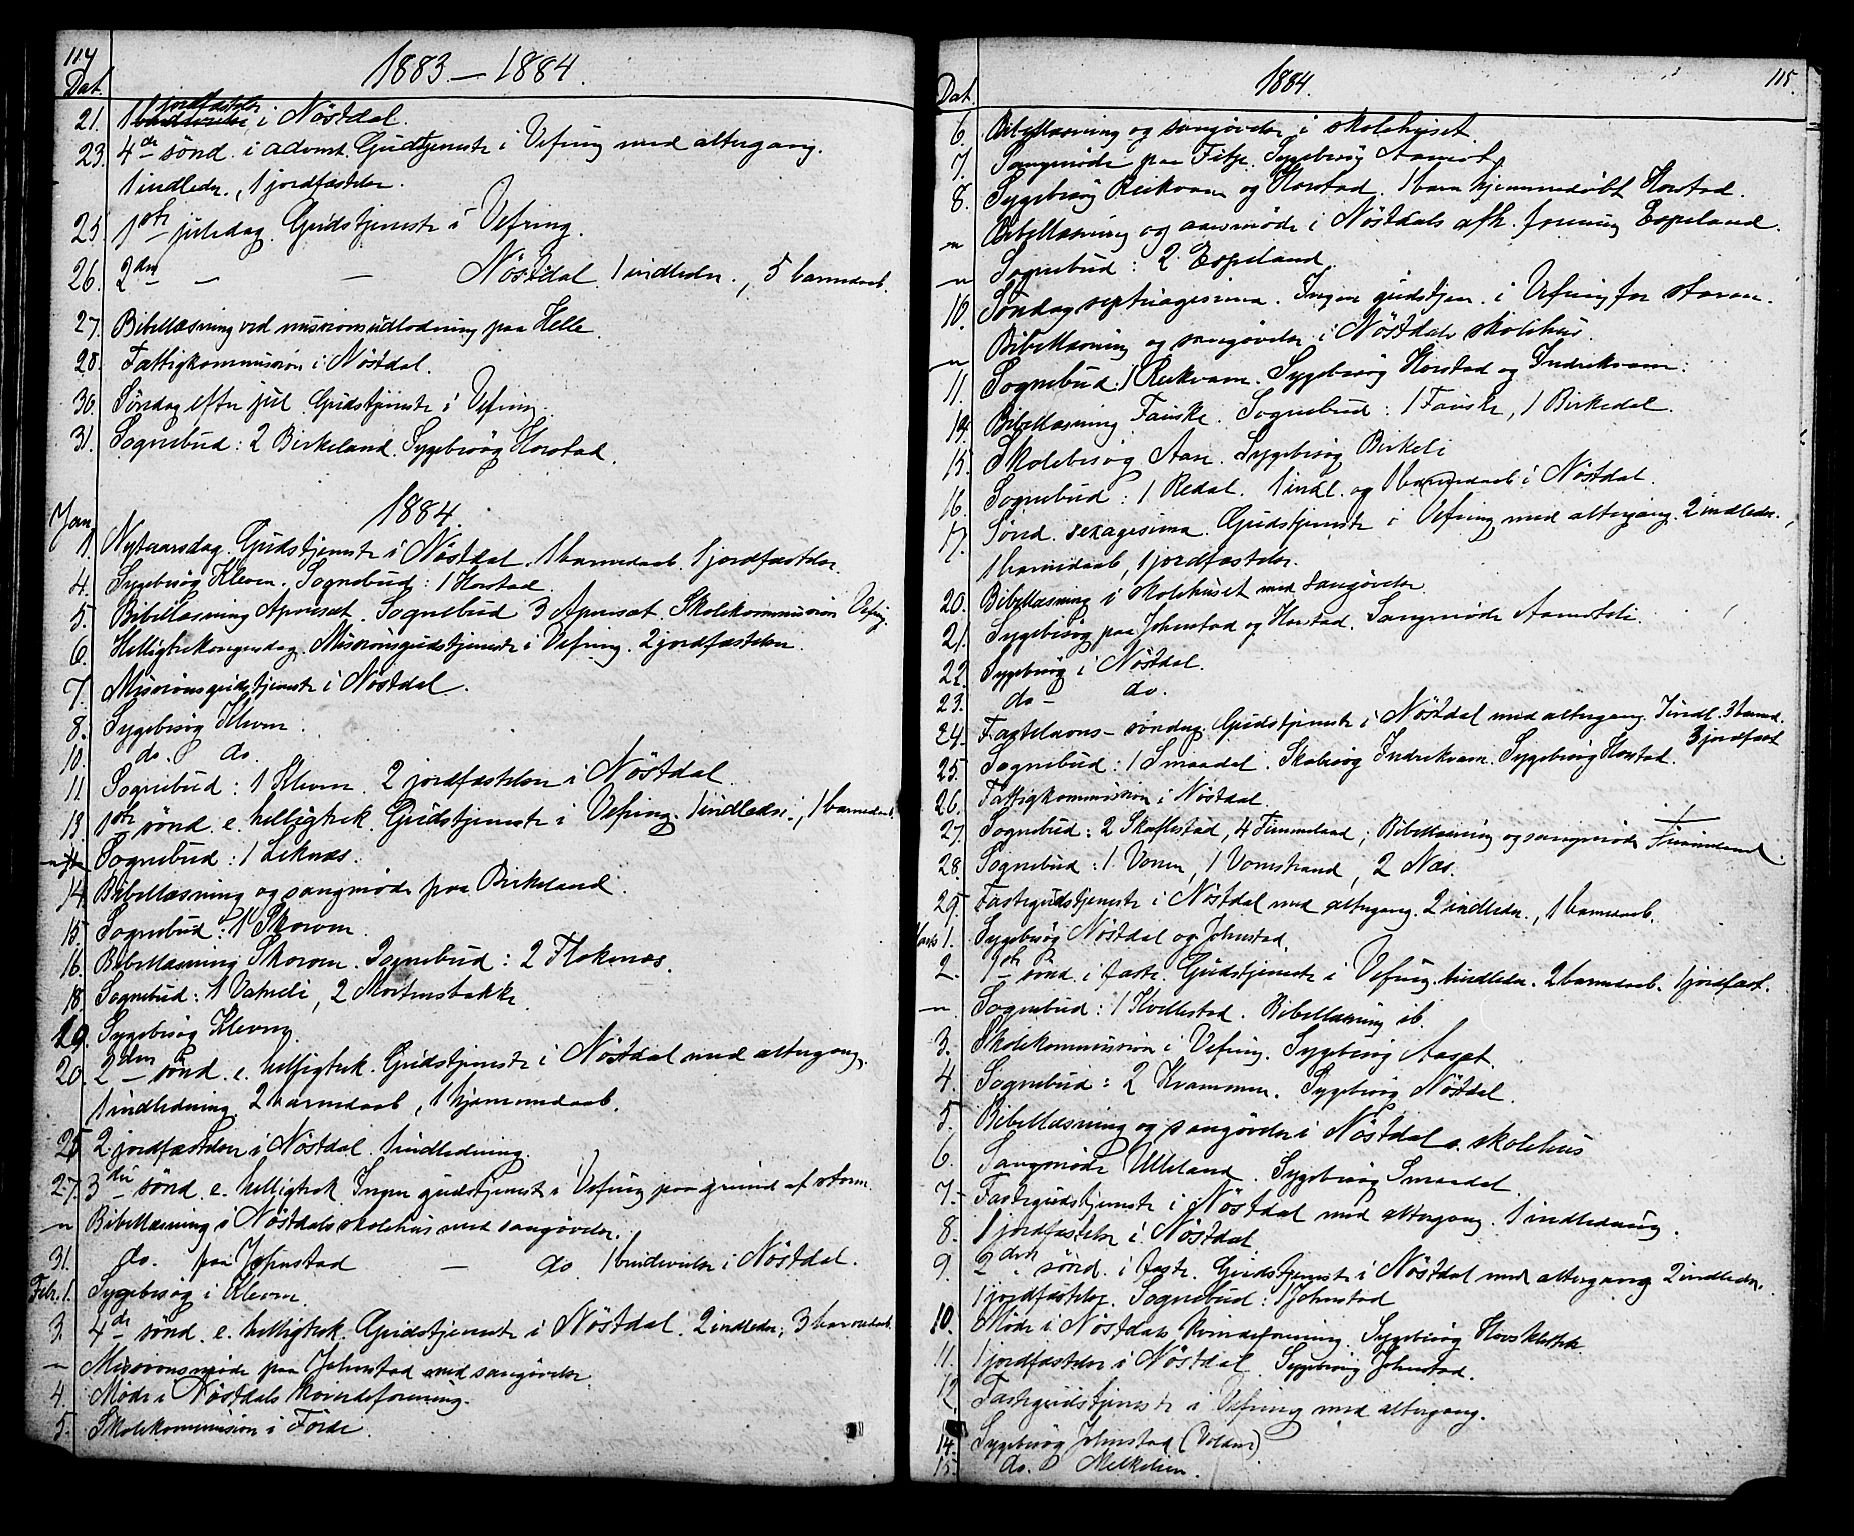 114
Dat.
1883 — 1884.
21. 1 jordfæstelse i Nöstdal.
23. 4de sönd. i advent. Gudtjeneste i Vefring med altergang.
1 indledn., 1 jordfæstelse.
25. 1ste juledag. Gudstjeneste i Vefring.
26. 2den — — Nöstdal. 1 indledn., 5 barnedaab.
27. Bibellæsning ved missionsudlodning paa Helle.
28. Fattigkommission i Nöstdal.
30. Söndag efter jul. Gudstjeneste i Vefring.
31. Sognebud: 2 Birkeland. Sygebesög Horstad.
1884.
Jan.
1. Nytaarsdag. Gudstjeneste i Nöstdal. 1 barnedaab. 1 jordfæstelse.
4. Sygebesög Kleven. Sognebud: 1 Horstad
5. Bibellæsning Apnesæt. Sognebud 3 Apnesæt. Skolekommission Vefrig.
6. Helligtrekongersdag. Missionsgudstjeneste i Vefring. 2 jordfæstelser.
7. Missionsgudstjeneste i Nöstdal.
8. Sygebesög Kleven.
10. do. do.
11. Sognebud: 1 Kleven. 2 jordfæstelser i Nöstdal.
13. 1ste sönd. e. helligtrek. Gudstjeneste i Vefring. 1 indledn., 1 barnedaab.
" Sognebud: 1 Leknæs.
14. Bibellæsning og sangmöde paa Birkeland.
15. Sognebud: 1 Skoren.
16. Bibellæsning Skoren. Sognebud: 2 Flokenæs.
18. Sognebud: 1 Vatneli, 2 Mortensbakke
19. Sygebesög Kleven
20. 2den sönd. e. helligtrek. Gudstjeneste i Nöstdal med altergang,
1 indledning, 2 barnedaab, 1 hjemmedaab.
25. 2 jordfæstelser i Nöstdal. 1 indledning.
27. 3die sönd. e. helligtrek. Ingen gudstjeneste i Vefring paa grund af storm.
" Bibellæsning i Nöstdals skolehus med sangövelse.
31. do. paa Johnstad — do. 1 brudevielse i Nöstdal.
Febr. 1. Sygebesög i Kleven.
3. 4de sönd. e. helligtrek. Gudstjeneste i Nöstdal. 2 indledn., 3 barnedaab.
— Missionsmöde paa Johnstad med sangövelse.
4. Möde i Nöstdals kvindeforening.
5. Skolekommission i Förde.
115.
Dat.
1884.
6. Bibellæsning og sangövelse i skolehuset.
7. Sangmöde paa Fitje. Sygebesög Aamot.
8. Sygebesög Reekvam og Horstad. 1 barn hjemmedöbt Horstad.
" Bibellæsning og aarsmöde i Nöstdals afh. forening Espeland.
" Sognebud: 2 Espeland.
10. Söndag septuagesima. Ingen gudstjen. i Vefring for storm.
" Bibellæsning og sangövelse i Nöstdals skolehus.
11. Sognebud: 1 Reekvam. Sygebesög Horstad og Indrekvam.
14. Bibellæsning Fauske. Sognebud: 1 Fauske, 1 Birkedal.
15. Skolebesög Aase. Sygebesög Birkeli
16. Sognebud: 1 Redal. 1 indl. og 1 barnedaab i Nöstdal.
17. Sönd. sexagesima. Gudstjeneste i Vefring med altergang. 2 indledn.,
1 barnedaab, 1 jordfæstelse.
20. Bibellæsning i skolehuset med sangövelse.
21. Sygebesög paa Johnstad og Horstad. Sangmöde Aamotsli.
22. Sygebesög i Nöstdal.
23. do — do.
24. Fastelavns-söndag. Gudstjeneste i Nöstdal med altergang. 1 indl. 3 barned.
3 jordfæst
25. Sognebud: 1 Smaadal. Skolebesög Indrekvam. Sygebesög Horstad.
26. Fattigkommission i Nöstdal.
27. Sognebud: 2 Skaflestad, 4 Timmeland; Bibellæsning og sangmöde Timmeland.
28. Sognebud: 1 Vonen, 1 Vonstrand, 2 Næs.
29. Fastegudstjeneste i Nöstdal med altergang. 2 indledn., 1 barnedaab.
Marts 1. Sygebesög Nöstdal og Johnstad.
2. 1ste sönd. i faste. Gudstjeneste i Vefring. 1 indledn. 2 barnedaab. 1 jordfæst.
" Sognebud: 1 Kvellestad. Bibellæsning ib.
3. Skolekommission i Vefring. Sygebesög Aaset.
4. Sognebud: 2 Krammen. Sygebesög Nöstdal.
5. Bibellæsning og sangövelse i Nöstdals skolehus
6. Sangmöde Ulleland. Sygebesög Smaadal.
7. Fastegudstjeneste i Nöstdal med altergang. 1 indledning.
8. 1 jordfæstelse i Nöstdal.
9. 2den sönd. i faste. Gudstjeneste i Nöstdal med altergang 2 indledn.
1 jordfæstelse. Sognebud: 1 Johnstad
10. Möde i Nöstdals kvindeforening. Sygebesög
11. 1 jordfæstelse i Nöstdal. Sygebesög Johnstad.
12. Fastegudstjeneste i Vefring med altergang.
14. Sygebesög Johnstad (Volden)
15. do. Melkelien.